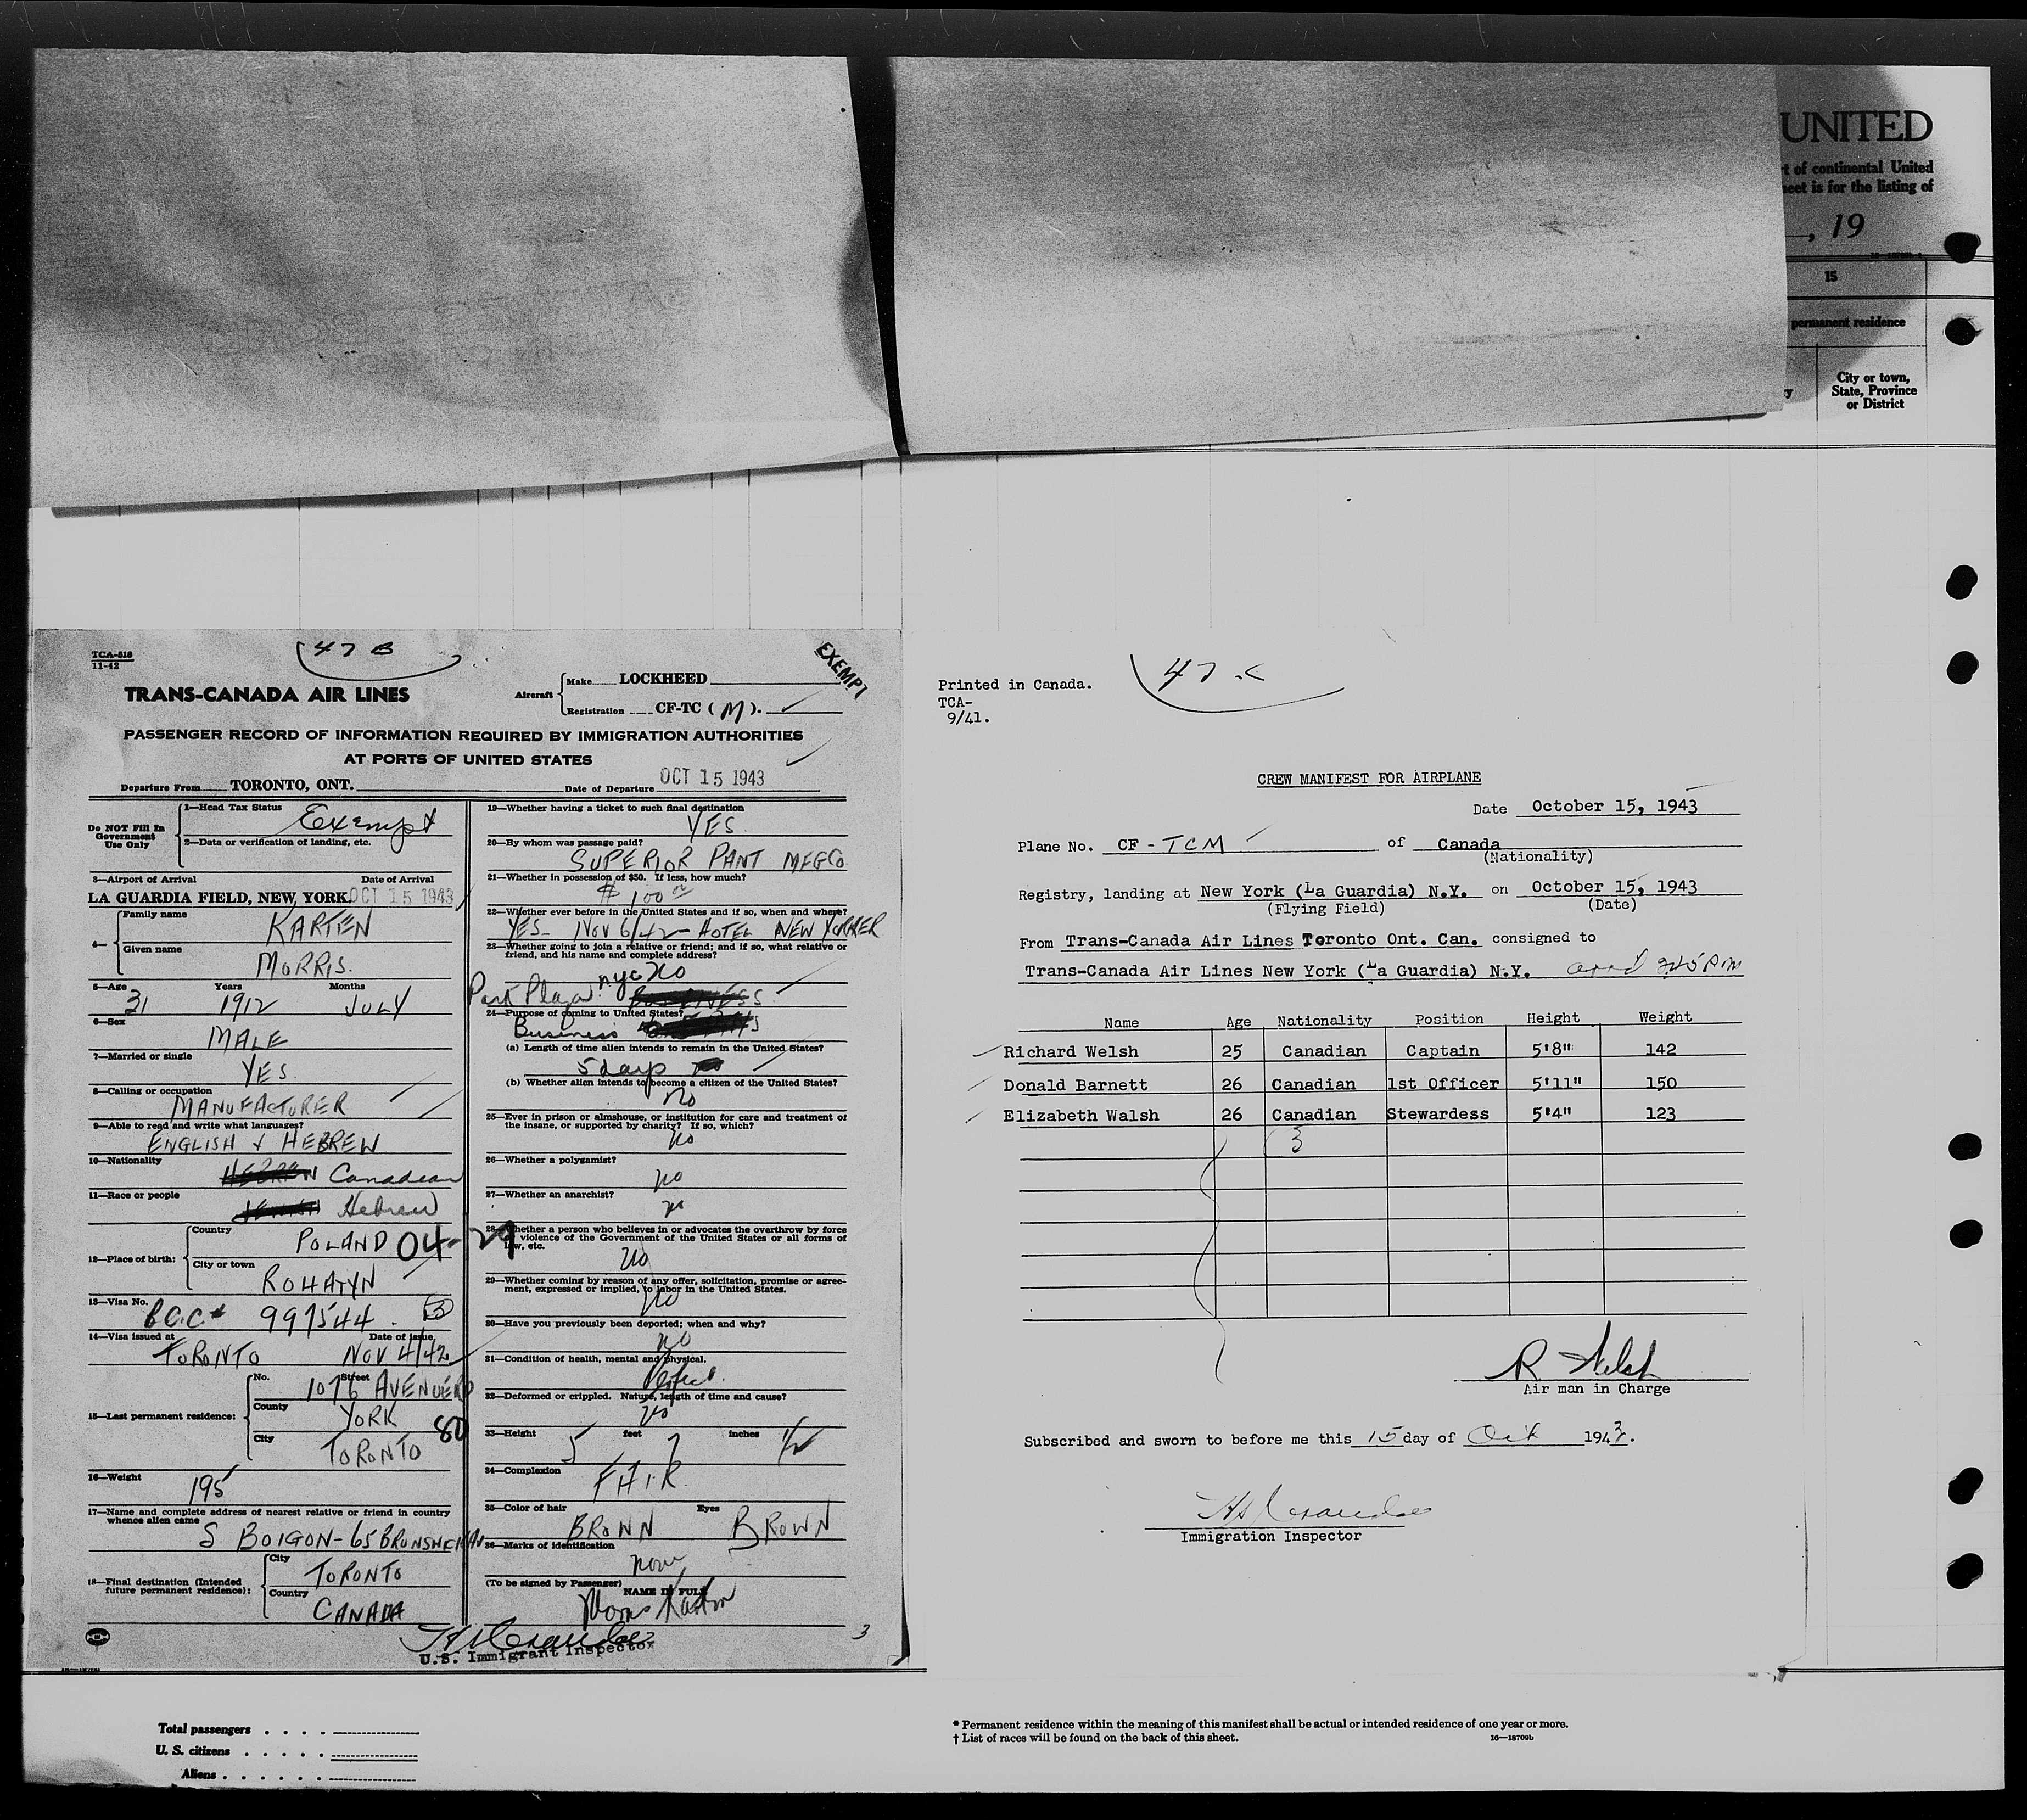 UNITED
t of continental United
eet is for the listing of
, 19
15
permanent residence
City or town,
State, Province
or District
TCA-518
11-42
47 B
EXEMPT
TRANS-CANADA AIR LINES
Aircraft
Make LOCKHEED
Registration CF-TC (M).
PASSENGER RECORD OF INFORMATION REQUIRED BY IMMIGRATION AUTHORITIES
AT PORTS OF UNITED STATES
Departure From TORONTO, ONT. Date of Departure OCT 15 1943
Do NOT Fill In
Government
Use Only
1—Head Tax Status
Exempt
2—Data or verification of landing, etc.
3—Airport of Arrival Date of Arrival
LA GUARDIA FIELD, NEW YORK. OCT 15 1943
4—
Family name
KARTEN
Given name
MORRIS.
5—Age Years Months
31 1912 JULY
6—Sex
MALE
7—Married or single
YES
8—Calling or occupation
MANUFACTURER
9—Able to read and write what languages?
ENGLISH & HEBREW
10—Nationality
HEBREW Canadian
11—Race or people
JEWISH Hebrew
12—Place of birth:
Country
POLAND 04-29
City or town
ROHATYN
13—Visa No.
B.C.C# 997544. 3
14—Visa issued at Date of issue
TORONTO NOV 4/42
15—Last permanent residence:
No. Street
1076 AVENUE RD
County
YORK
80
City
TORONTO
16—Weight
195
17—Name and complete address of nearest relative or friend in country
whence alien came
S BOIGON-65 BRUNSWICK AV
18—Final destination (Intended
future permanent residence):
City
TORONTO
Country
CANADA
19—Whether having a ticket to such final destination
YES.
20—By whom was passage paid?
SUPERIOR PANT MFG Co.
21—Whether in possession of $50. If less, how much?
$100 00
22—Whether ever before in the United States and if so, when and where?
YES- NOV 6/42- HOTEL NEW YORKER
23—Whether going to join a relative or friend; and if so, what relative or
friend, and his name and complete address?
NO
Park Plaza nyc
24—Purpose of coming to United States?
Business
(a) Length of time alien intends to remain in the United States?
5 days
(b) Whether alien intends to become a citizen of the United States?
no
25—Ever in prison or almshouse, or institution for care and treatment of
the insane, or supported by charity? If so, which?
no
26—Whether a polygamist?
no
27—Whether an anarchist?
no
28—Whether a person who believes in or advocates the overthrow by force
or violence of the Government of the United States or all forms of
law, etc.
no
29—Whether coming by reason of any offer, solicitation, promise or agree-
ment, expressed or implied, to labor in the United States.
no
30—Have you previously been deported; when and why?
no
31—Condition of health, mental and physical.
Perfect.
32—Deformed or crippled. Nature, length of time and cause?
no
33—Height 5 feet 7 inches 1/2
34—Complexion
FAIR
35—Color of hair Eyes
BROWN BROWN
36—Marks of identification
none
(To be signed by Passenger)
NAME IN FULL
Morris Karten
U.S. Immigrant Inspector
3
Total passengers . . . .
U. S. citizens . . . . .
Aliens . . . . . .
Printed in Canada.
TCA-
9/41.
47 C
CREW MANIFEST FOR AIRPLANE
Date October 15, 1943
Plane No. CF - TCM of Canada
(Nationality)
Registry, landing at New York (La Guardia) N.Y. on October 15, 1943
(Flying Field) (Date)
From Trans-Canada Air Lines Toronto Ont. Can. consigned to
Trans-Canada Air Lines New York (La Guardia) N.Y. arrd 245 PM
Name Age Nationality Position Height Weight
Richard Welsh 25 Canadian Captain 5'8" 142
Donald Barnett 26 Canadian 1st Officer 5'11" 150
Elizabeth Walsh 26 Canadian Stewardess 5'4" 123
3
R Welsh
Air man in Charge
Subscribed and sworn to before me this 15 day of Oct 1943.
Immigration Inspector
* Permanent residence within the meaning of this manifest shall be actual or intended residence of one year or more.
† List of races will be found on the back of this sheet.
16—18709b